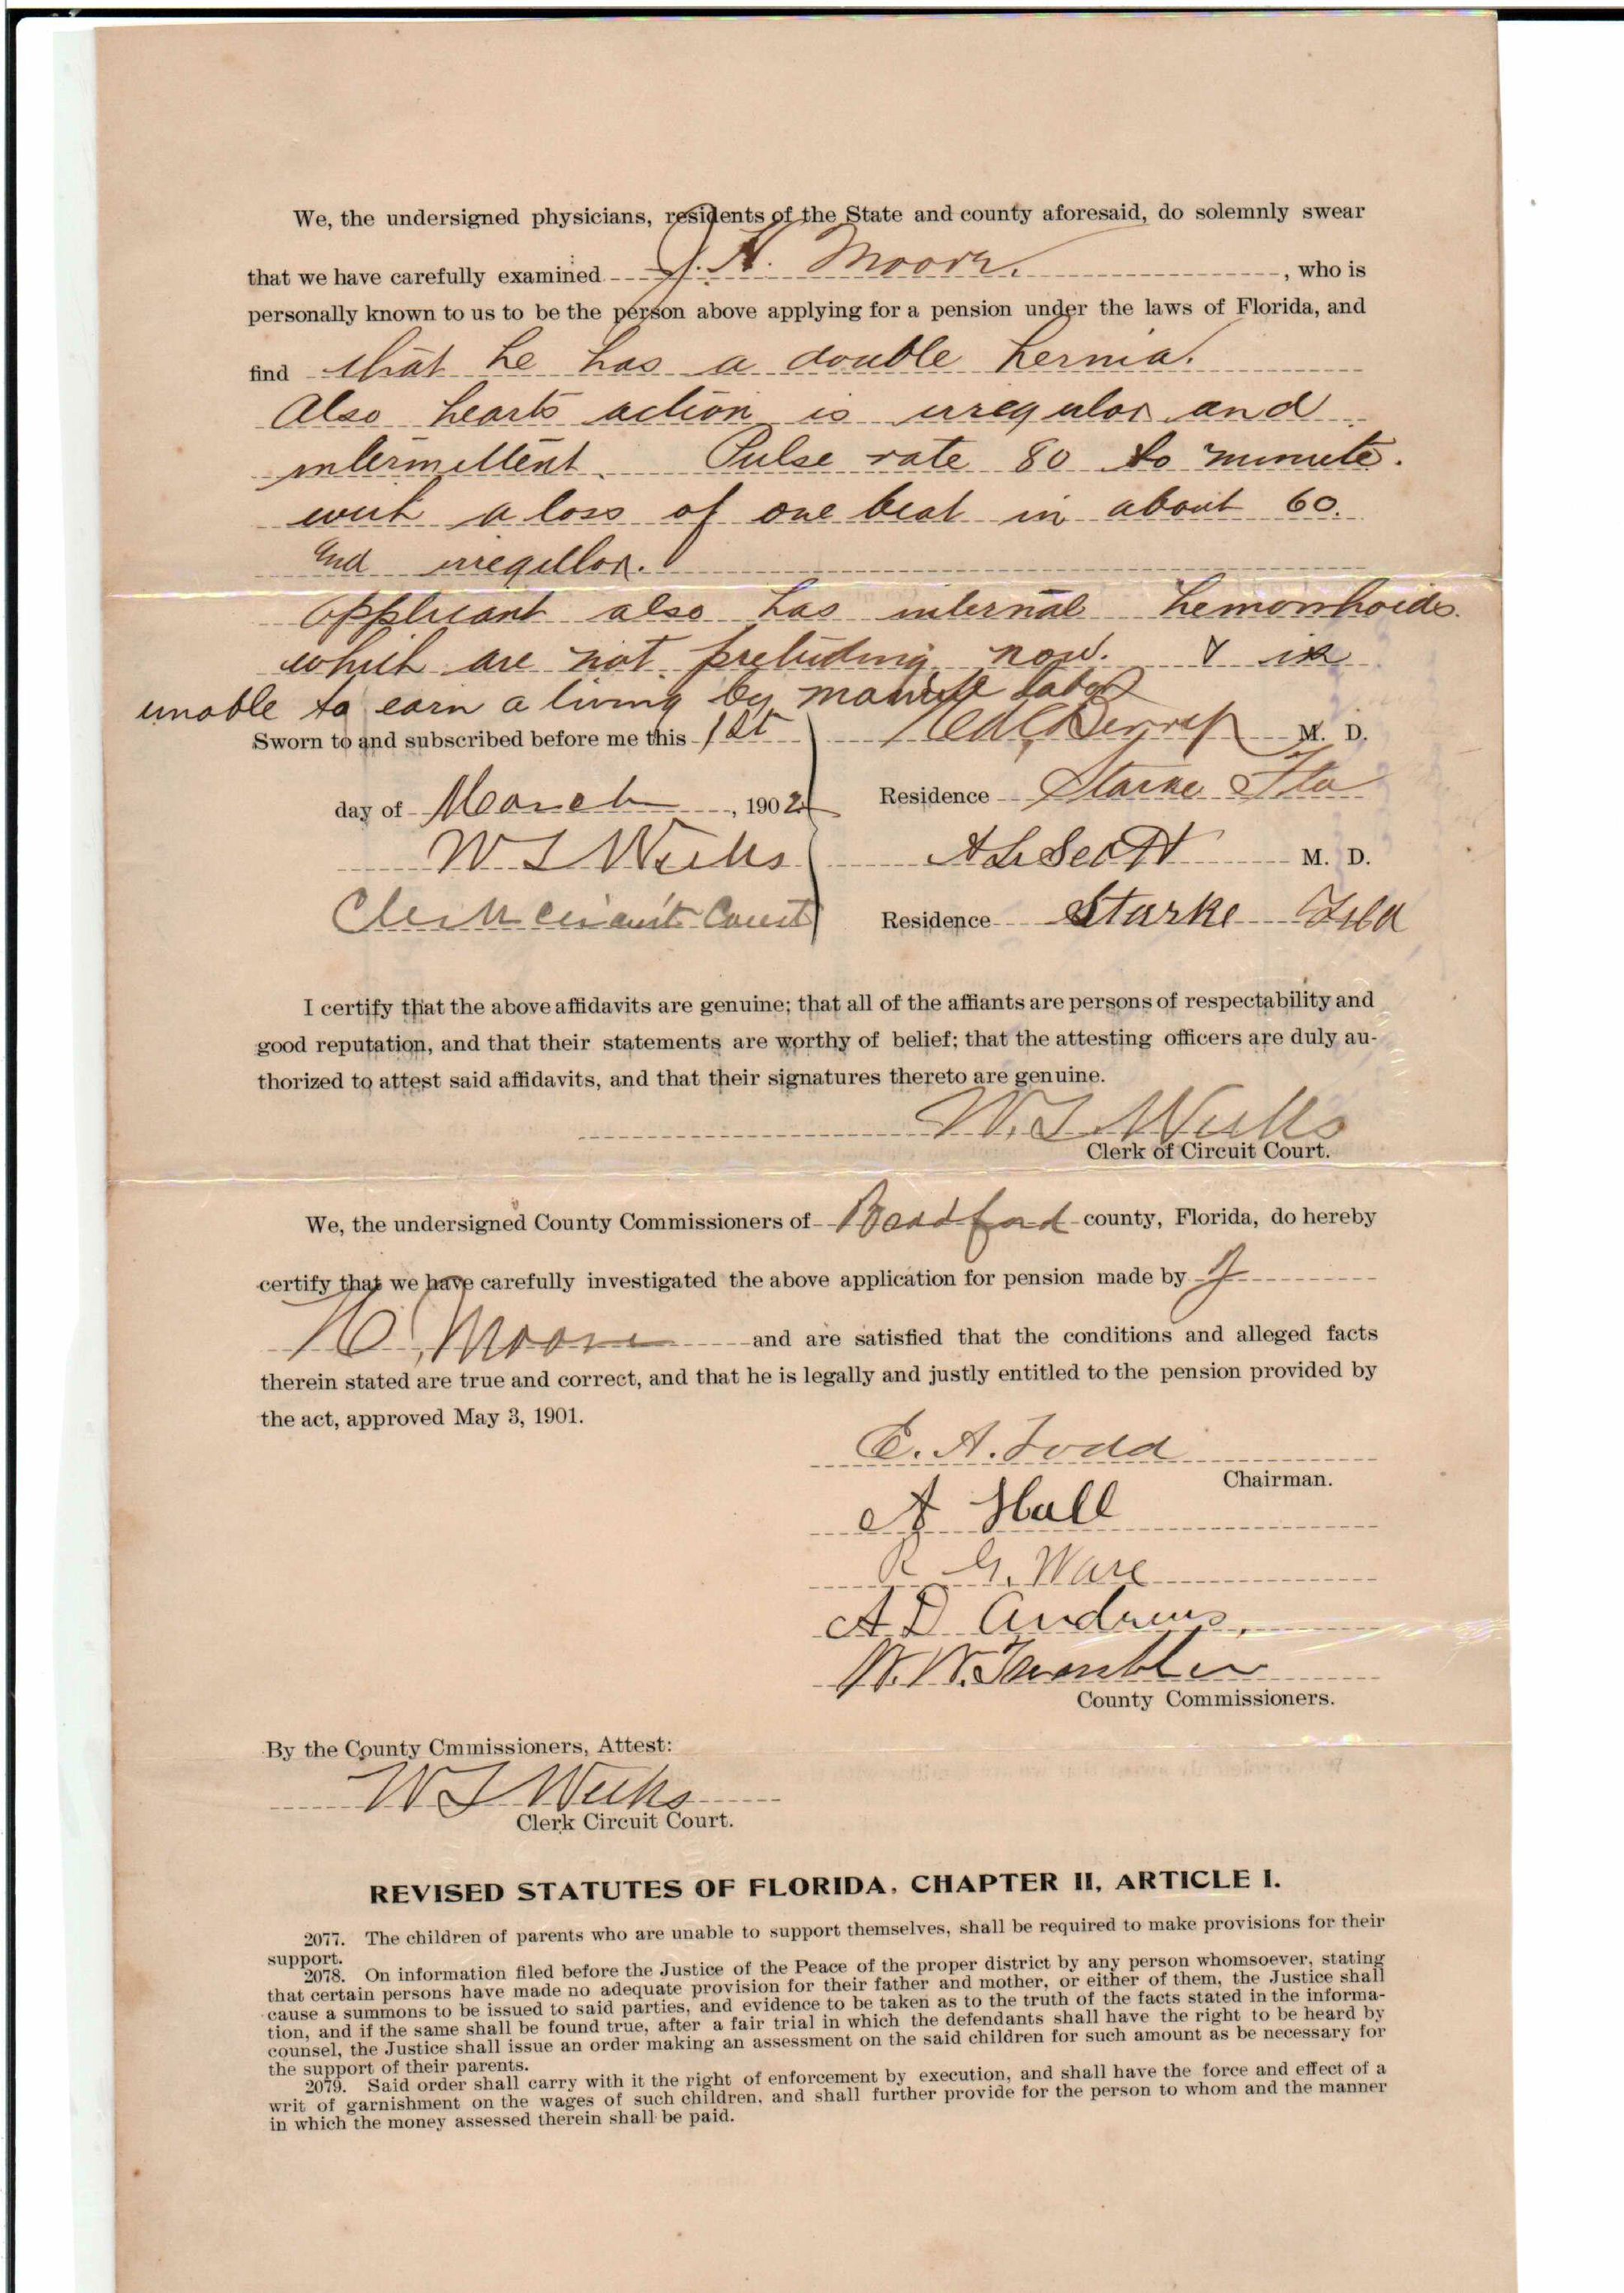 We, the undersigned physicians, residents of the State and county aforesaid, do solemnly swear
that we have carefully examined J. H. Moore. , who is
personally known to us to be the person above applying for a pension under the laws of Florida, and
find that he has a double hernia.
Also hearts action is irregular and
intermittent. Pulse rate 80 to minute.
with a loss of one beat in about 60.
and irregullar.
Applicant also has internal hemorrhoids
which are not pretuding now. & is
unable to earn a living by labor
Sworn to and subscribed before me this 1st M. D.
day of March , 1902 Residence Starke Fla
W L Weeks A L Scott M. D.
Clerk Circuit Court Residence Starke Fla
I certify that the above affidavits are genuine; that all of the affiants are persons of respectability and
good reputation, and that their statements are worthy of belief; that the attesting officers are duly au-
thorized to attest said affidavits, and that their signatures thereto are genuine.
W. L Weeks
Clerk of Circuit Court.
We, the undersigned County Commissioners of Bradford county, Florida, do hereby
certify that we have carefully investigated the above application for pension made by J
H. Moore and are satisfied that the conditions and alleged facts
therein stated are true and correct, and that he is legally and justly entitled to the pension provided by
the act, approved May 3, 1901.
E. A. Todd
Chairman.
A Hall
R G. Ware
A D Andrews,
W. W.
County Commissioners.
By the County Cmmissioners, Attest:
W L Weeks
Clerk Circuit Court.
REVISED STATUTES OF FLORIDA, CHAPTER II, ARTICLE I.
2077. The children of parents who are unable to support themselves, shall be required to make provisions for their
support.
2078. On information filed before the Justice of the Peace of the proper district by any person whomsoever, stating
that certain persons have made no adequate provision for their father and mother, or either of them, the Justice shall
cause a summons to be issued to said parties, and evidence to be taken as to the truth of the facts stated in the informa-
tion, and if the same shall be found true, after a fair trial in which the defendants shall have the right to be heard by
counsel, the Justice shall issue an order making an assessment on the said children for such amount as be necessary for
the support of their parents.
2079. Said order shall carry with it the right of enforcement by execution, and shall have the force and effect of a
writ of garnishment on the wages of such children, and shall further provide for the person to whom and the manner
in which the money assessed therein shall be paid.